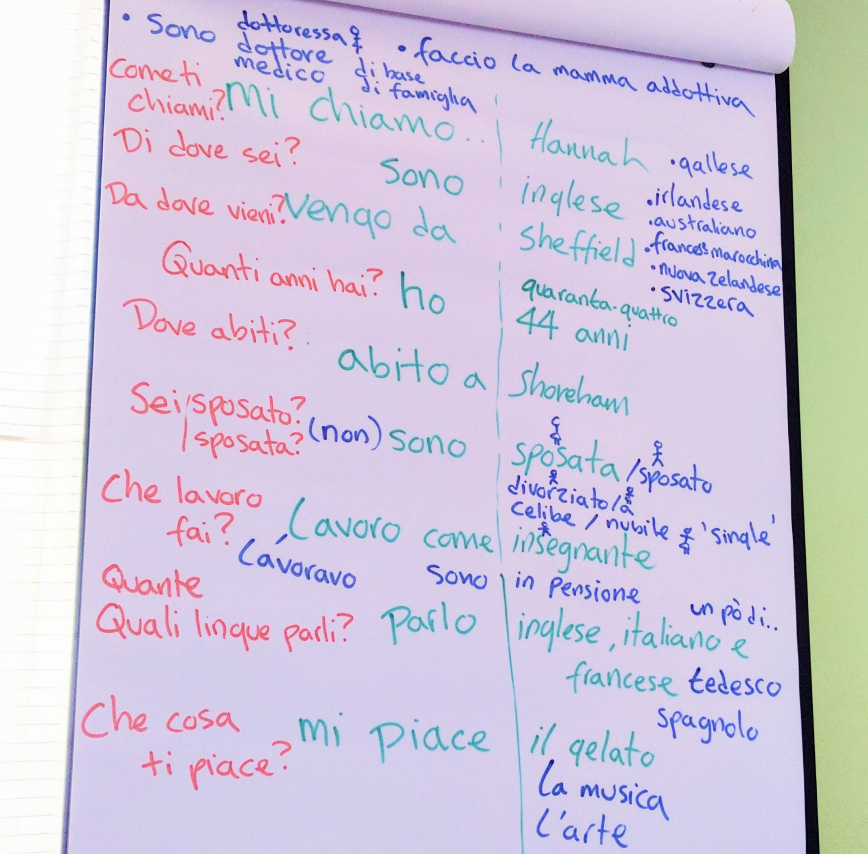 • Sono dottoressa
dottore
medico di base
di famiglia
• faccio la mamma addottiva
Come ti chiami? Mi chiamo... Hannah • gallese
Di dove sei? Sono inglese • irlandese
• australiano
Da dove vieni? Vengo da Sheffield • francese marocchina
• nuova zelandese
• svizzera
Quanti anni hai? ho quaranta-quattro
44 anni
Dove abiti? abito a Shoreham
Sei/sposato?
/sposata? (non) sono sposata/sposato
divorziato/a
celibe / nubile 'single'
Che lavoro
fai? Lavoro come insegnante
Lavoravo sono in pensione
Quante
Quali lingue parli? Parlo inglese, italiano e
un pò di..
francese tedesco
spagnolo
Che cosa
ti piace? mi piace il gelato
la musica
l'arte